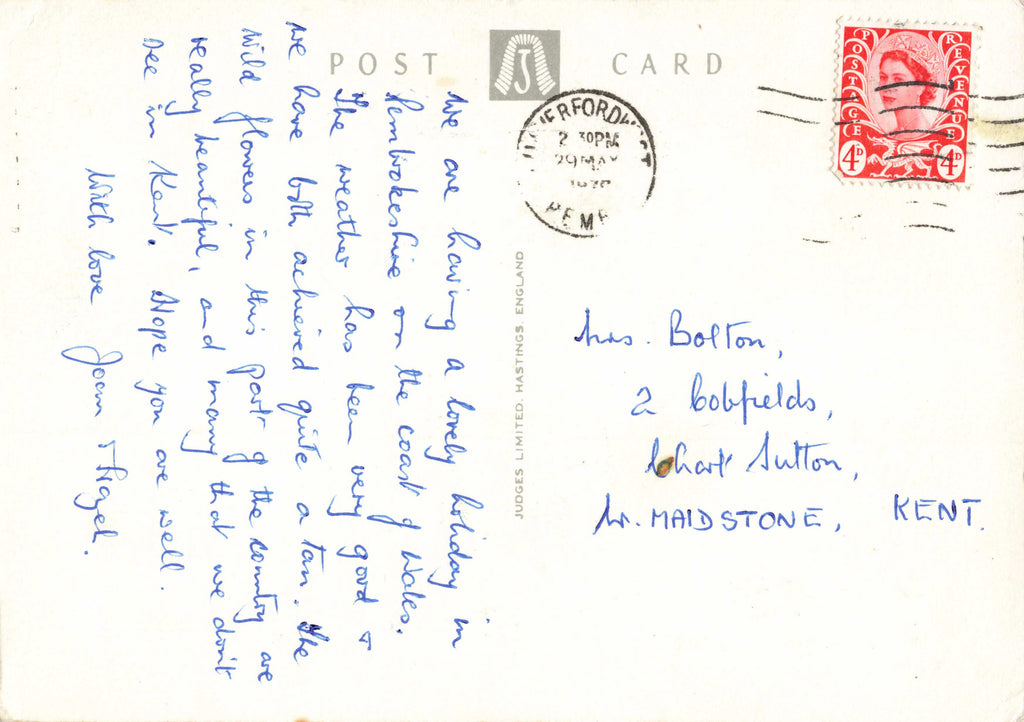 POST CARD
We are having a lovely holiday in
Pembrokeshire on the coast of Wales.
The weather has been very good +
we have both achieved quite a tan. The
wild flowers in this part of the country are
really beautiful, and many that we don't
see in Kent. Hope you are well.
With love Joan + Hazel.
JUDGES LIMITED, HASTINGS, ENGLAND
2 30PM
29 MAY
PEMB
POSTAGE REVENUE
4D 4D
Mrs. Bolton,
2 Cobfields,
Chart Sutton,
Nr. MAIDSTONE, KENT.